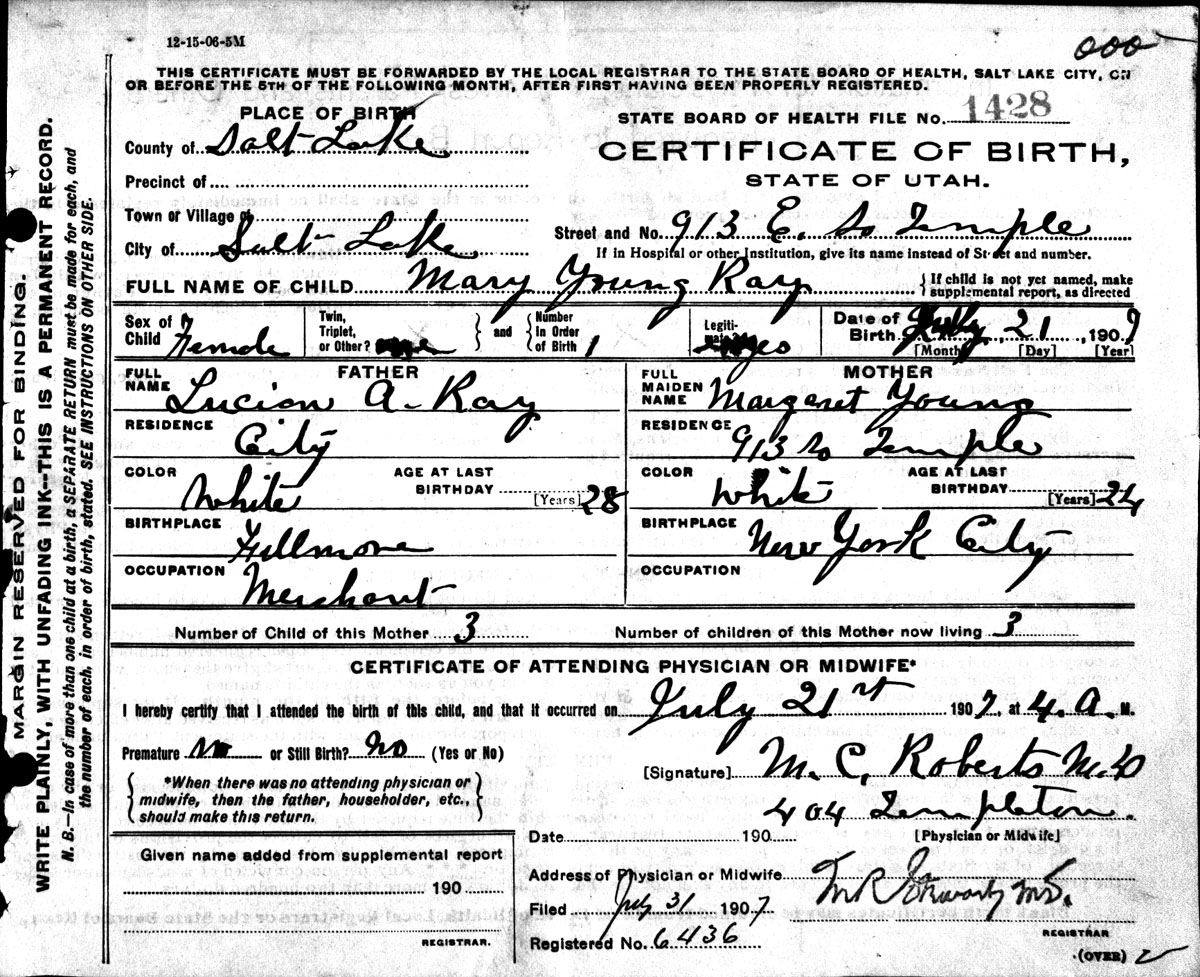 12-15-06-5M
000
THIS CERTIFICATE MUST BE FORWARDED BY THE LOCAL REGISTRAR TO THE STATE BOARD OF HEALTH, SALT LAKE CITY, ON
OR BEFORE THE 5TH OF THE FOLLOWING MONTH, AFTER FIRST HAVING BEEN PROPERLY REGISTERED.
PLACE OF BIRTH
STATE BOARD OF HEALTH FILE No. 1428
County of Salt Lake
CERTIFICATE OF BIRTH,
STATE OF UTAH.
Precinct of
Town or Village of
City of Salt Lake
Street and No. 913 E. So Temple
If in Hospital or other Institution, give its name instead of Street and number.
FULL NAME OF CHILD Mary Young Ray
{ If child is not yet named, make
supplemental report, as directed
Sex of Child Female
Twin, Triplet, or Other?
and
Number in Order of Birth 1
Legitimate? yes
Date of Birth July 21, 1907
[Month] [Day] [Year]
FATHER
FULL NAME Lucian A. Ray
RESIDENCE City
COLOR White
AGE AT LAST BIRTHDAY 28 [Years]
BIRTHPLACE Fillmore
OCCUPATION Merchant
MOTHER
FULL MAIDEN NAME Margaret Young
RESIDENCE 913 So Temple
COLOR White
AGE AT LAST BIRTHDAY 24 [Years]
BIRTHPLACE New York City
OCCUPATION
Number of Child of this Mother 3
Number of children of this Mother now living 3
CERTIFICATE OF ATTENDING PHYSICIAN OR MIDWIFE*
I hereby certify that I attended the birth of this child, and that it occurred on July 21st 1907, at 4. A. M.
Premature No or Still Birth? No (Yes or No)
*When there was no attending physician or
midwife, then the father, householder, etc.,
should make this return.
[Signature] M. C. Roberts M.D
404 Templeton.
Date 190
[Physician or Midwife]
Given name added from supplemental report
190
REGISTRAR.
Address of Physician or Midwife
Filed July 31 1907
Registered No. 6436
REGISTRAR
(OVER)
MARGIN RESERVED FOR BINDING.
WRITE PLAINLY, WITH UNFADING INK--THIS IS A PERMANENT RECORD.
N. B.—In case of more than one child at a birth, a SEPARATE RETURN must be made for each, and
the number of each, in order of birth, stated. SEE INSTRUCTIONS ON OTHER SIDE.